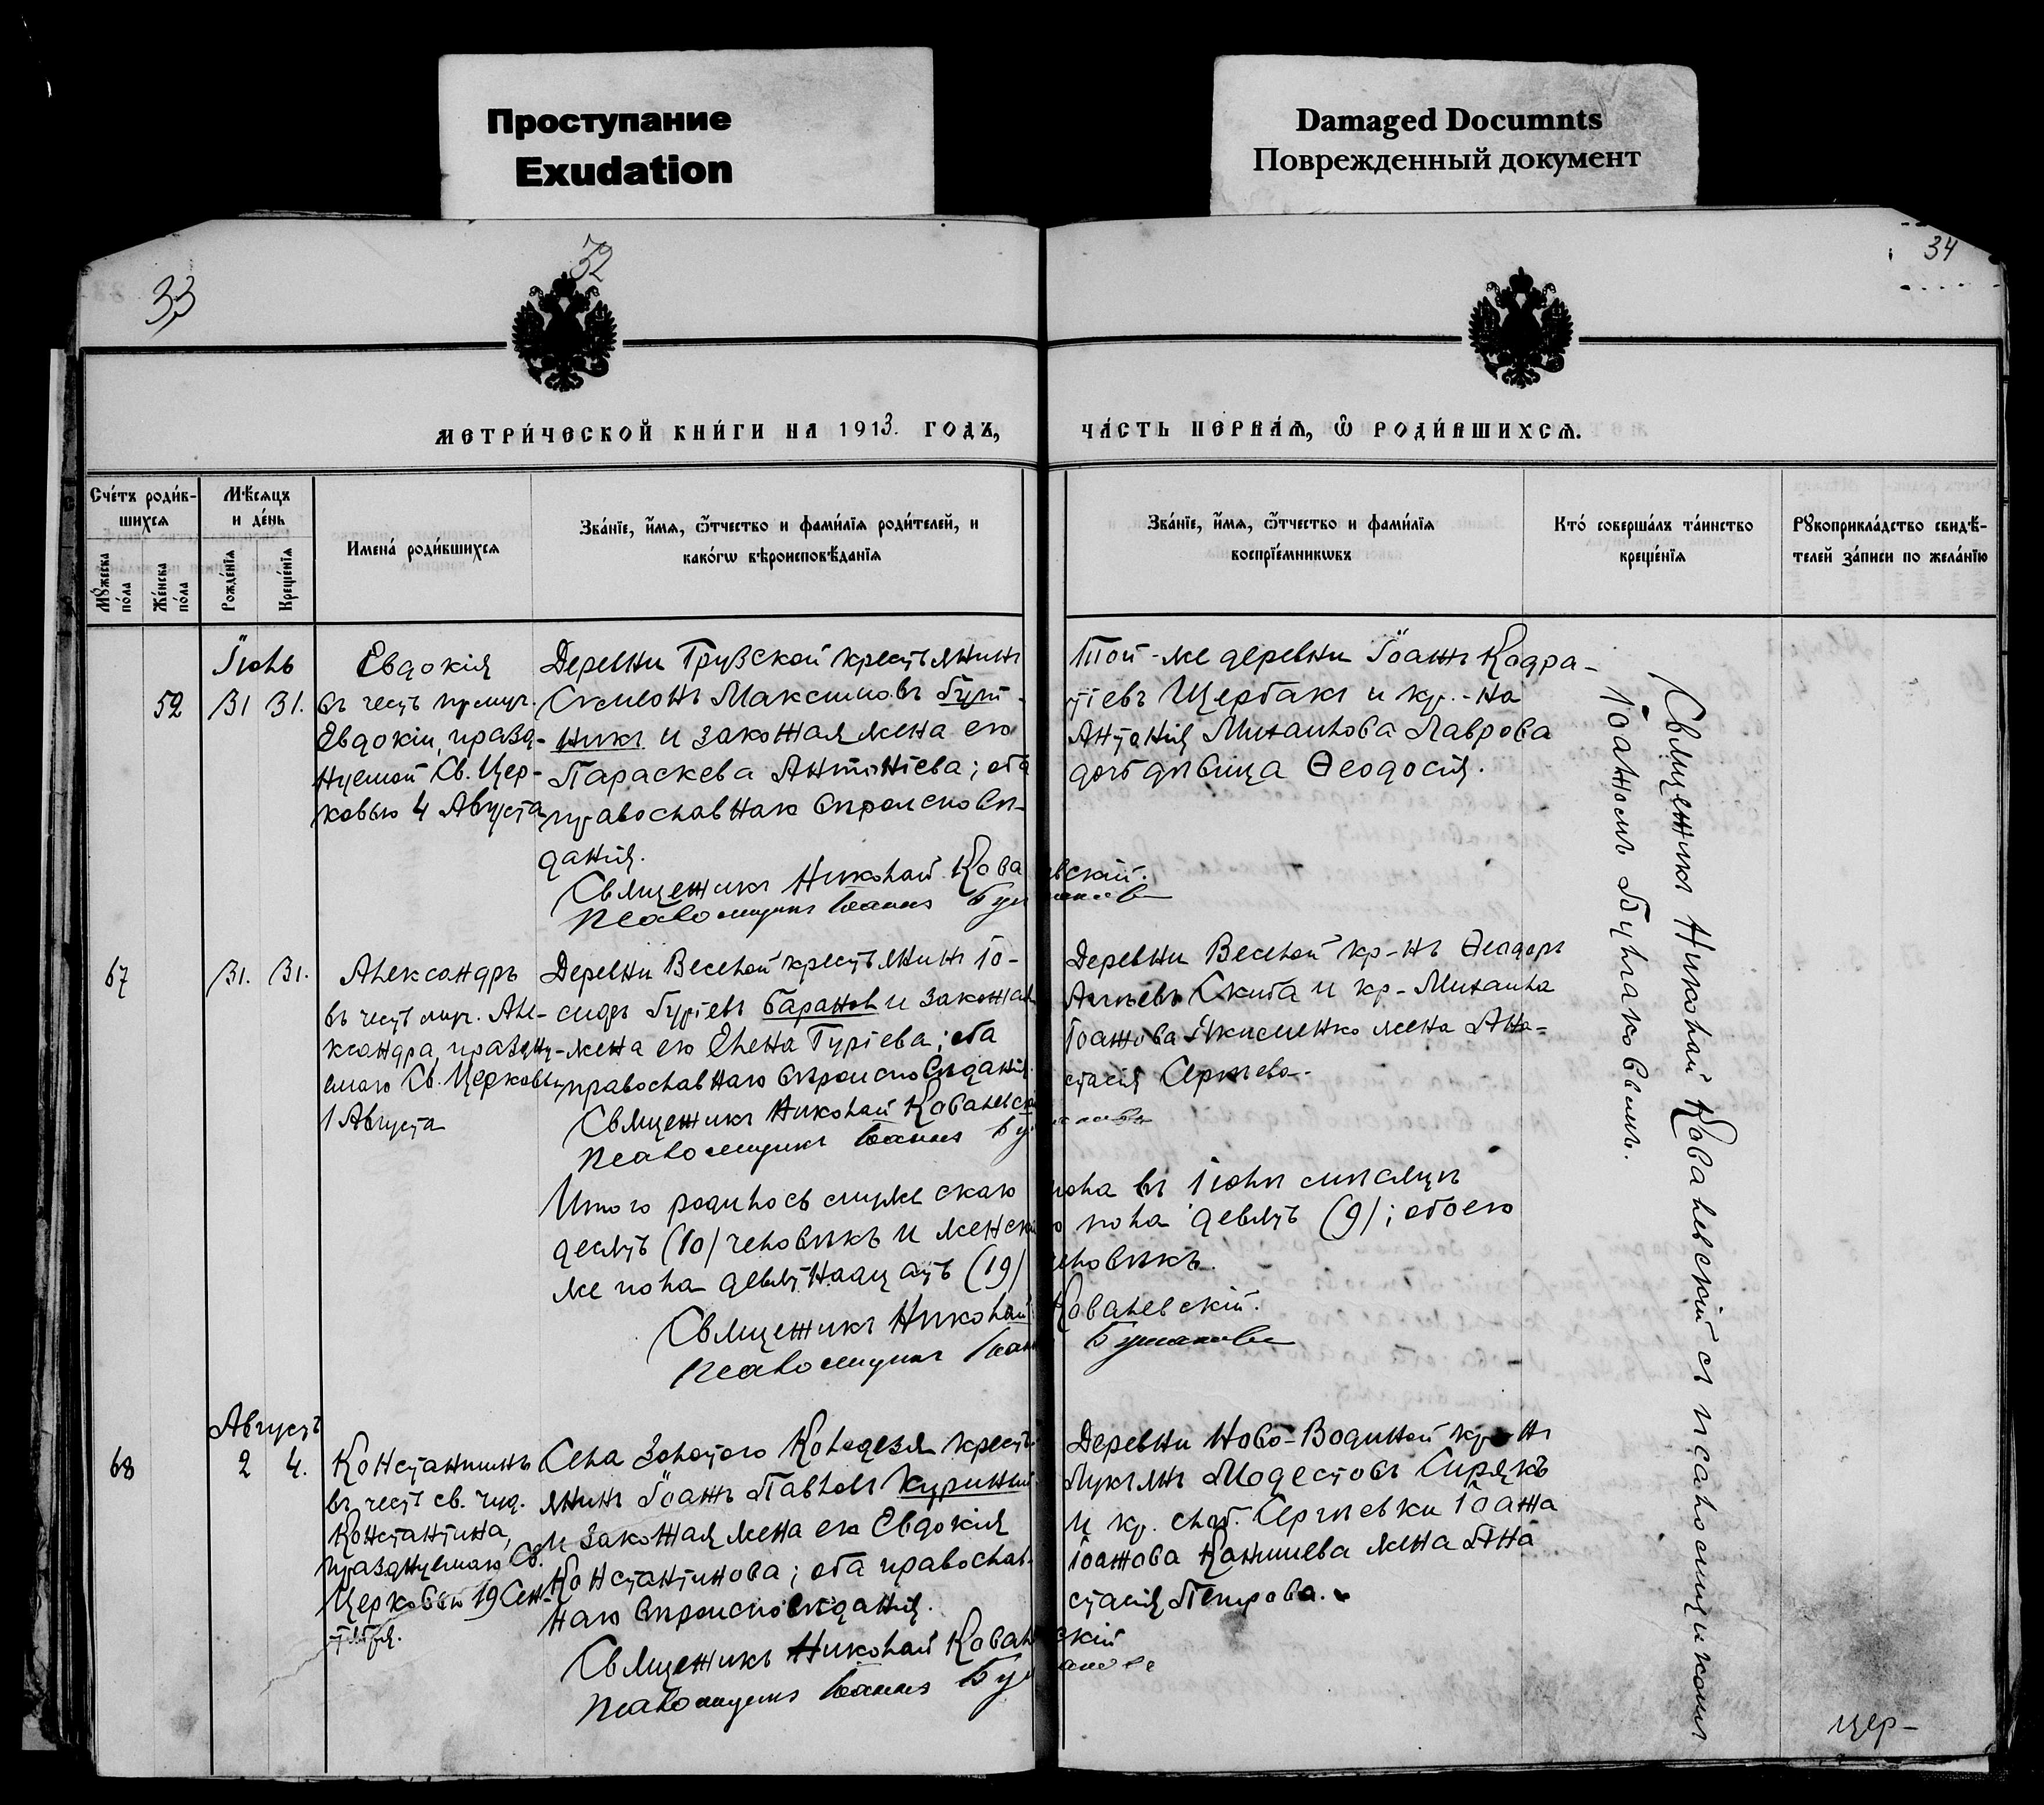 Проступание
Exudation
Damaged Documnts
Поврежденный документ
33
32
34
МЕТРИ́ЧЕСКОЙ КНИ́ГИ НА 1913. ГОДЪ,
ЧА́СТЬ ПЕРВАѦ, Ѡ҆ РОДИ́ВШИХСѦ.
Сче́тъ роди́в-
шихсѧ
Мѣ́сѧцъ
и де́нь
Мꙋ́жеска
по́ла
Же́нска
по́ла
Рожде́нїѧ
Креще́нїѧ
Имена́ роди́вшихсѧ
Зва́нїе, и҆́мѧ, ѻ҆́тчество и фами́лїѧ роди́телей, и
како́гѡ вѣроисповѣ́данїѧ
Зва́нїе, и҆́мѧ, ѻ҆́тчество и фами́лїѧ
воспрїе́мникѡвъ
Кто́ соверша́лъ та́инство
креще́нїѧ
Рꙋкоприкла́дство свидѣ́-
телей за́писи по жела́нїю
Іюль
52 31 31.
Евдокія
въ честь прмуч.
Евдокіи, празд-
нуемой Св. Цер-
ковью 4 Августа
Деревни Грузской крестьянинъ
Симеонъ Максимовъ
и законная жена его
Параскева Антоніева; оба
православнаго вѣроисповѣ-
данія.
Священникъ Николай Ковалевскій.
Псаломщикъ Іоаннъ Булгаковъ
Той-же деревни Іоаннъ Кодра-
тіевъ Щербакъ и кр.-на
Антонія Михаилова Лаврова
дочь дѣвица Ѳеодосія.
67 31. 31.
Александръ
въ честь муч. Але-
ксандра, праздну-
емаго Св. Церковью
1 Августа
Деревни Веселой крестьянинъ Іо-
сифъ Гуріевъ Барановъ и законная
жена его Елена Гуріева; оба
православнаго вѣроисповѣданія.
Священникъ Николай Ковалевскій
Псаломщикъ Іоаннъ Булгаковъ
Деревни Веселой кр-нъ Ѳеодоръ
Скиба и кр- Михаила
Іоаннова Якименко жена Ана-
стасія Сергѣева.
Итого родилось мужескаго пола въ Іюлѣ мѣсяцѣ
десять (10) человѣкъ и женскаго пола девять (9); обоего
же пола девятнадцать (19) человѣкъ.
Священникъ Николай Ковалевскій.
Псаломщикъ Іоаннъ Булгаковъ
Августъ
68 2 4.
Константинъ
въ честь св. чуд.
Константина,
празднуемаго Св.
Церковью 19 Сен-
тября.
Села Золотого Колодезя кресть-
янинъ Іоаннъ Павловъ Куринный
и законная жена его Евдокія
Константинова; оба православ-
наго вѣроисповѣданія.
Священникъ Николай Ковалевскій
Псаломщикъ Іоаннъ Булгаковъ
Деревни Ново-Водяной кр-нъ
Лукьянъ Модестовъ Сирякъ
и кр. слоб. Сергѣевки Іоанна
Іоаннова жена Ана
стасія Петрова.
Священникъ Николай Ковалевскій съ псаломщикомъ
Іоанномъ Булгаковымъ.
цер-